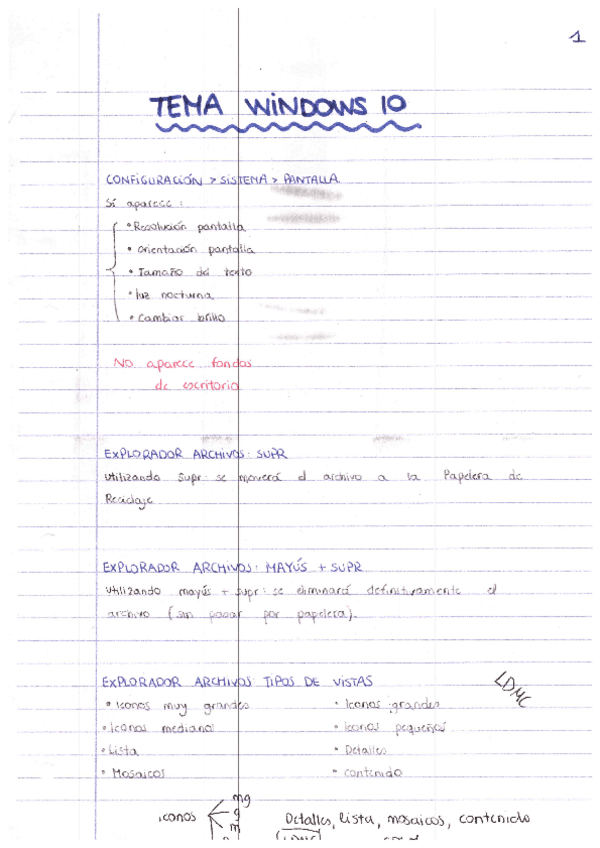 1
TEMA WINDOWS 10
CONFIGURACIÓN > SISTEMA > PANTALLA
Sí aparece:
• Resolución pantalla
• Orientación pantalla
• Tamaño del texto
• luz nocturna
• Cambiar brillo
NO aparece fondos
de escritorio
EXPLORADOR ARCHIVOS: SUPR
Utilizando Supr: se moverá el archivo a la Papelera de
Reciclaje
EXPLORADOR ARCHIVOS: MAYÚS + SUPR
Utilizando mayús + supr: se eliminará definitivamente el
archivo (sin pasar por papelera).
EXPLORADOR ARCHIVOS: TIPOS DE VISTAS
LDMC
• Iconos muy grandes • Iconos grandes
• Iconos medianos • Iconos pequeños
• Lista • Detalles
• Mosaicos • Contenido
mg
iconos g Detalles, lista, mosaicos, contenido
m (LDMC)